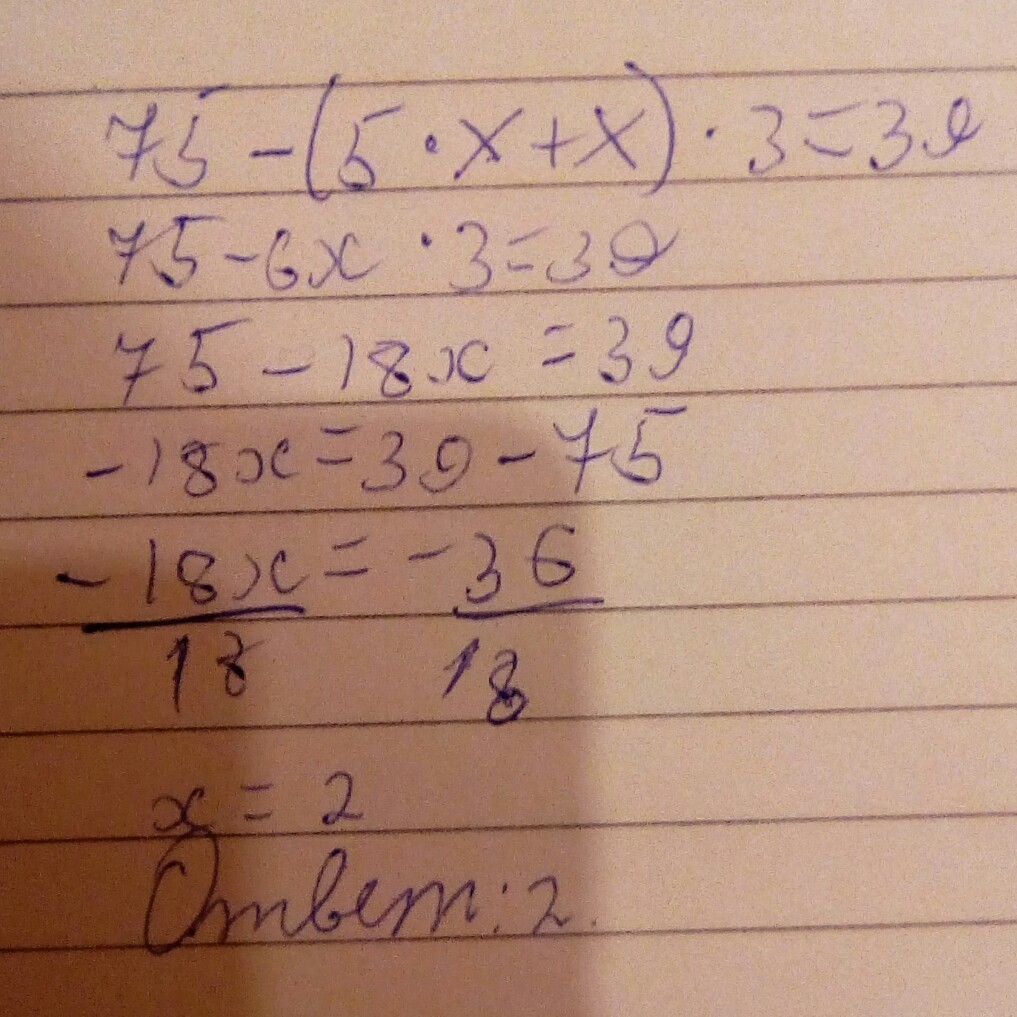 75-(5·x+x)·3=39
75-6x·3=39
75-18x=39
-18x=39-75
-18x=-36
18 18
x=2
Ответ: 2.